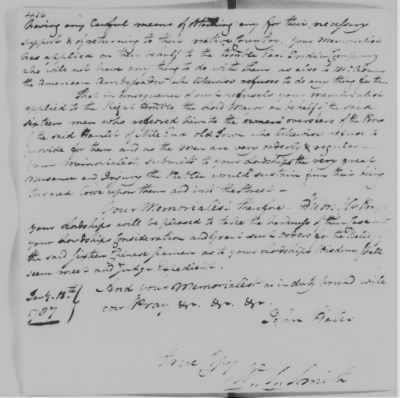 having any Lawful means of obtaining any for their necessary
support & of returning to their native Country, your Memorialist
has applied on their behalf to the Honble East India Company
who will not have any thing to do with them as also to
the American Ambassador who likewise refuses to do any thing for them
That in Consequence of such refusals your Memorialist
applied to the Right Honble the Lord Mayor on behalf of the said
sixteen men who referred him to the overseers of the Poor
of the said Hamlet of Mile End old Town who likewise refuse to
provide for them and as the men are very orderly & regular
your Memorialist submits to your Lordships the very great
Nuisance and Injury the Public would sustain from their being
turned loose upon them and into the Street —
Your Memorialist therefore
your Lordships will be pleased to take the hardness of their Case into
your Lordships Consideration and Grant such orders for the Relief of
the said sixteen Chinese seamen as to your Lordships Wisdom shall
seem meet and Judge Expedient.
And your Memorialist as in duty bound will
ever Pray &c. &c. &c.
1787
True Copy
Smith